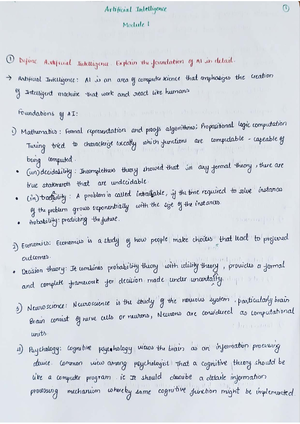 Artificial Intelligence
Module 1
1
1 Define Artificial Intelligence. Explain the foundation of AI in detail.
→ Artificial Intelligence : AI is an area of computer science that emphasizes the creation
of intelligent machine that work and react like humans
Foundations of AI:
1) Mathematics : Formal representation and proof algorithms; Propositional logic computation
Turing tried to characterise exactly which functions are computable - capable of
being computed
• (un)decidability : Incompleteness theory showed that in any formal theory, there are
true statements that are undecidable
• (in)tractability : A problem is called intractable, if the time required to solve instances
of the problem grows exponentially with the size of the instances
• Probability : predicting the future.
2) Economics : Economics is a study of how people make choices that lead to preferred
outcomes
• Decision theory : It combines probability theory with utility theory, provides a formal
and complete framework for decision made under uncertainty.
3) Neuroscience : Neuroscience is the study of the nervous system, particularly brain
Brain consist of nerve cells or neurons, Neurons are considered as computational
units
4) Psychology : Cognitive psychology views the brain as an information processing
device. Common view among psychologist that a cognitive theory should be
like a computer program ie It should describe a detail information
processing mechanism whereby some cognitive function might be implemented